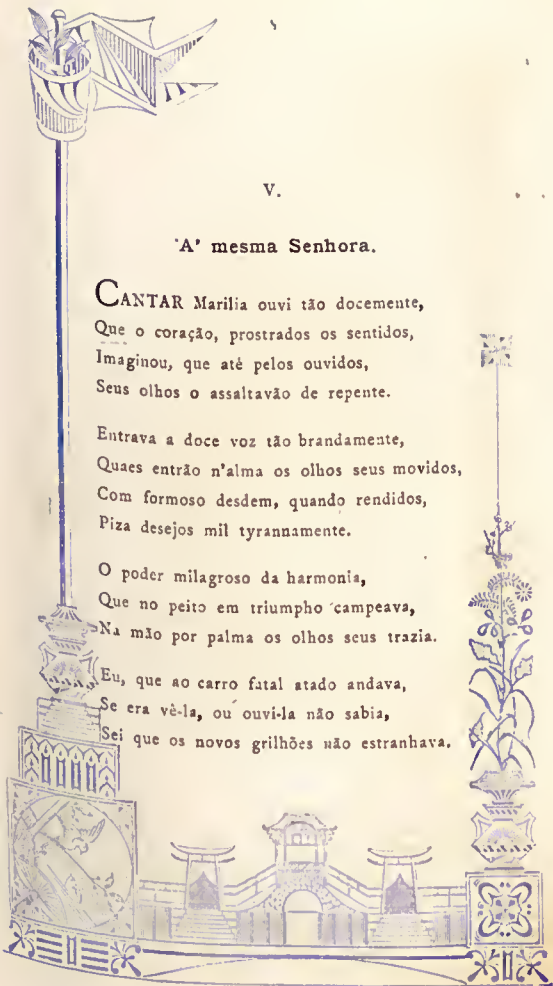 V.
'A' mesma Senhora.
CANTAR Marilia ouvi tão docemente,
Que o coração, prostrados os sentidos,
Imaginou, que até pelos ouvidos,
Seus olhos o assaltavão de repente.
Entrava a doce voz tão brandamente,
Quaes entrão n'alma os olhos seus movidos,
Com formoso desdem, quando rendidos,
Piza desejos mil tyrannamente.
O poder milagroso da harmonia,
Que no peito em triumpho campeava,
Na mão por palma os olhos seus trazia.
Eu, que ao carro fatal atado andava,
Se era vê-la, ou ouvi-la não sabia,
Sei que os novos grilhões não estranhava.